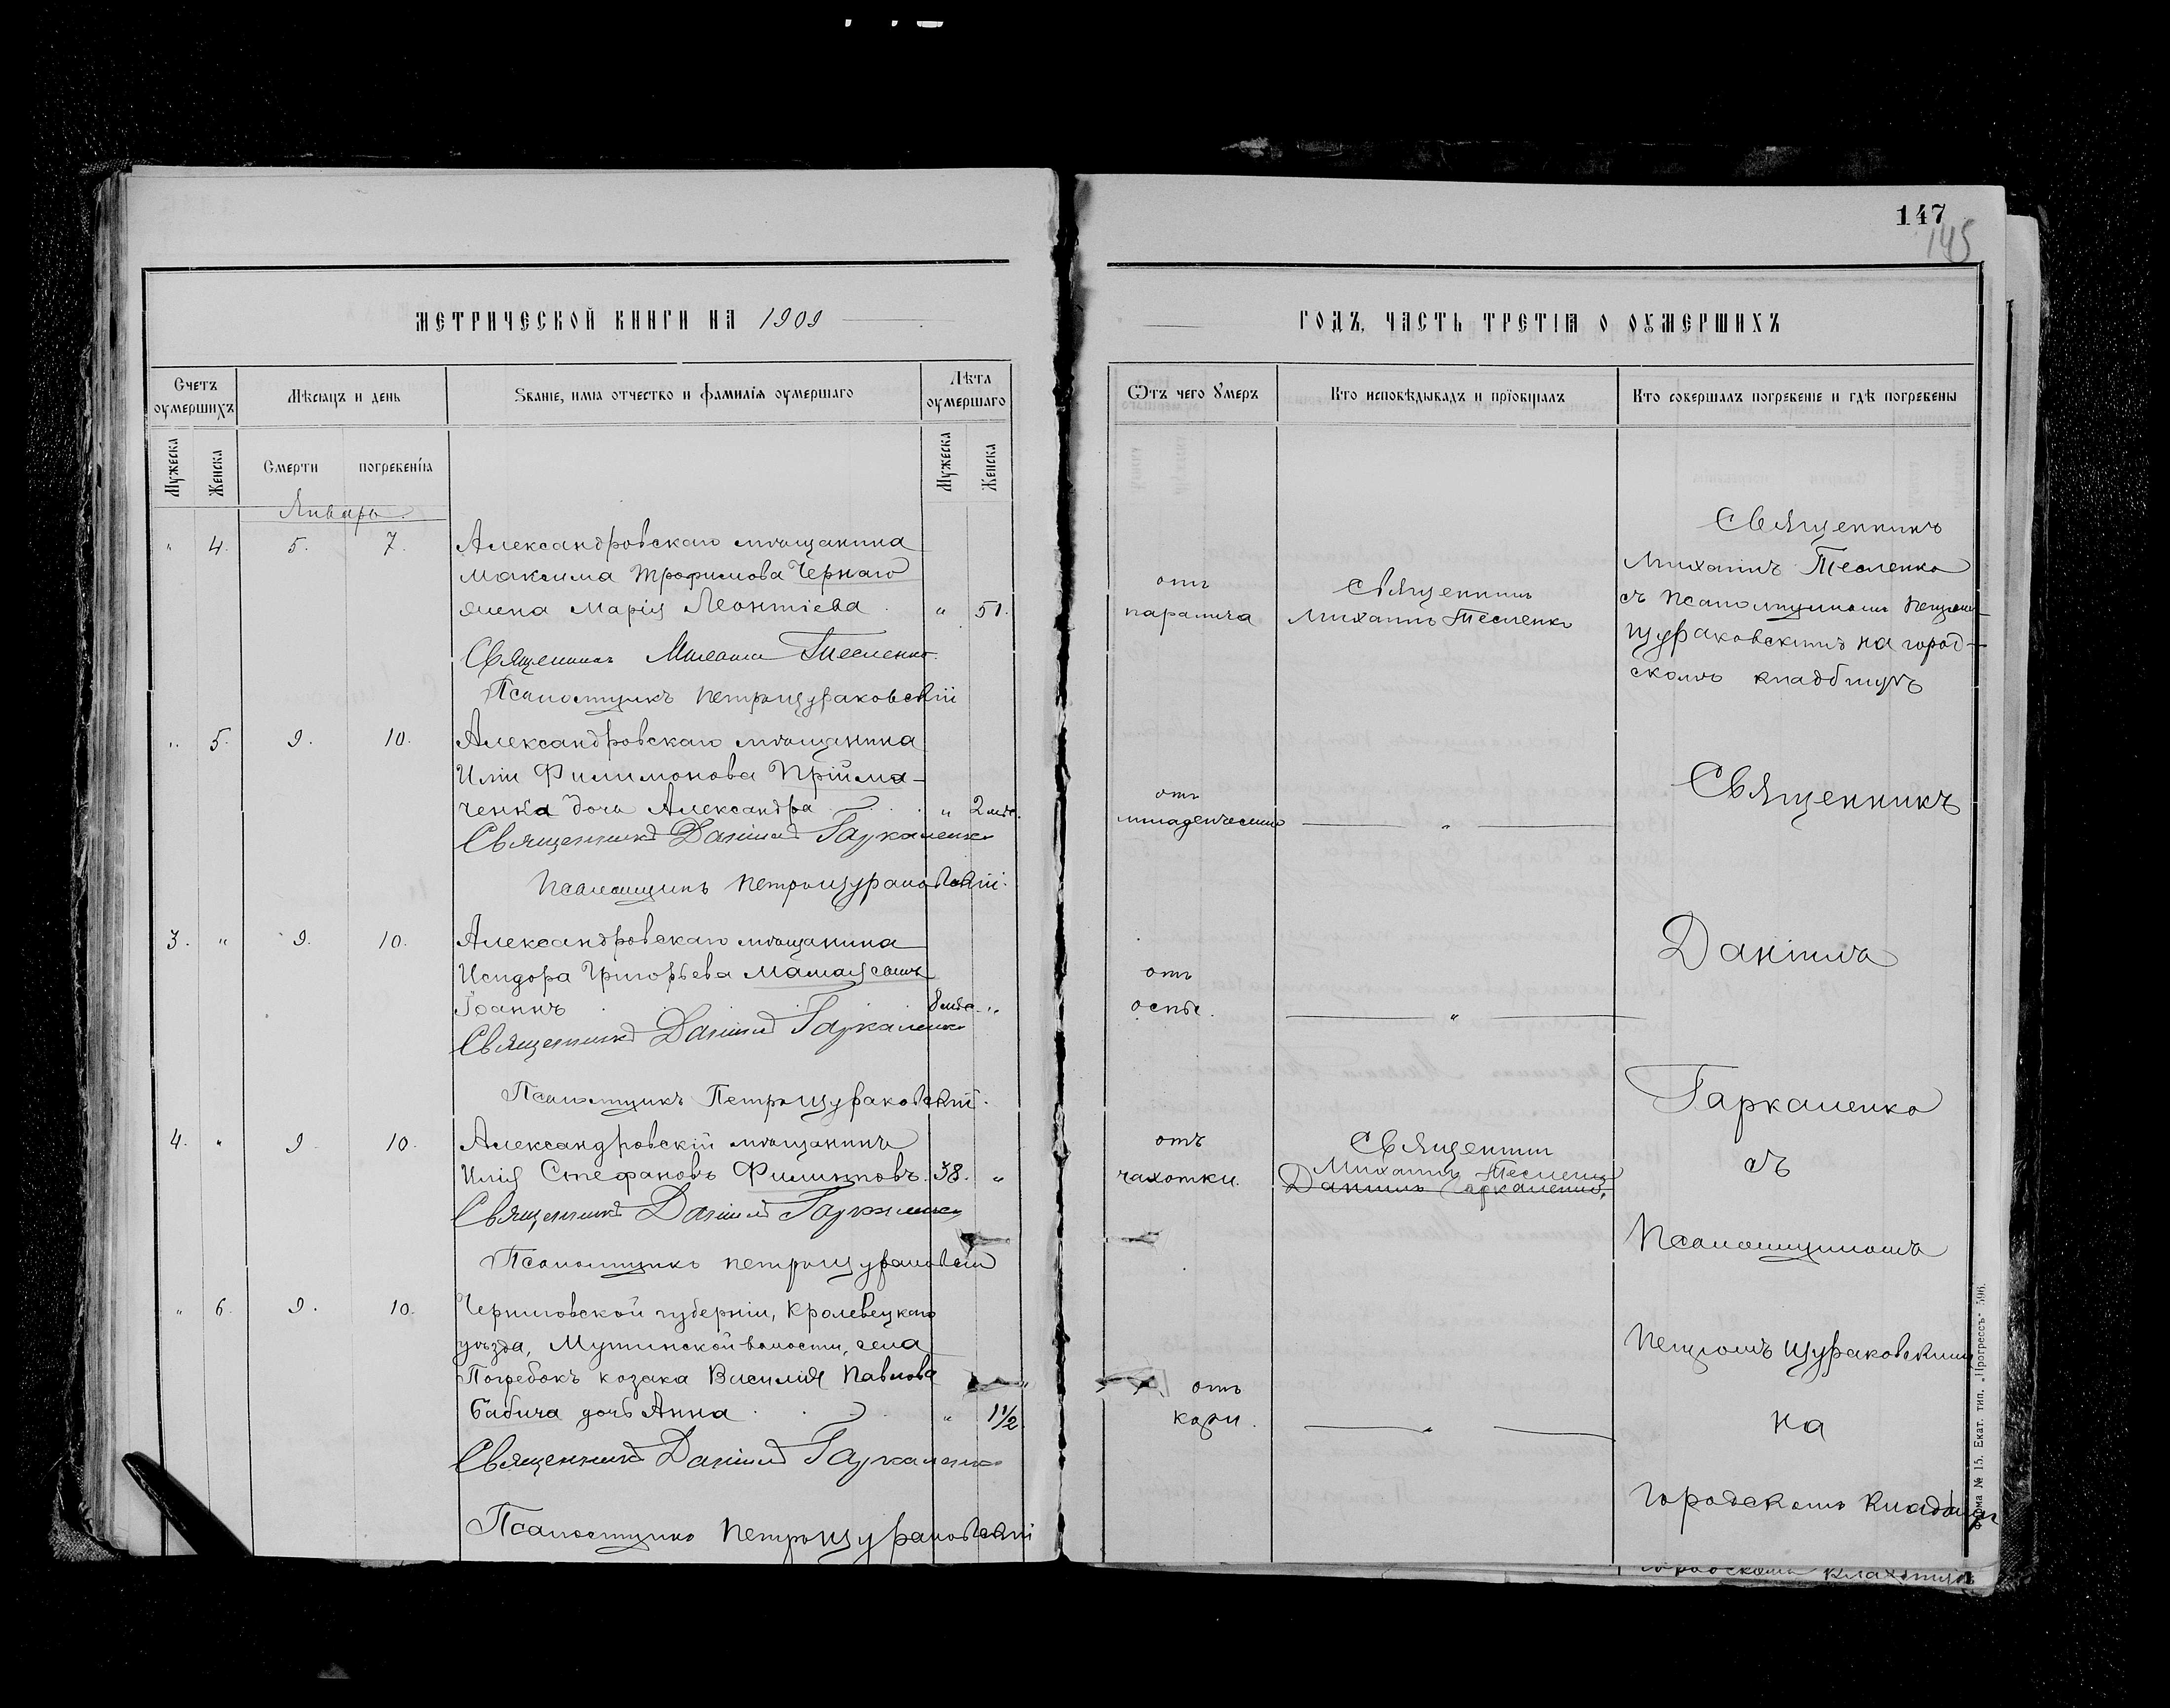 147
145
МЕТРИЧЕСКОЙ КНИГИ НА 1909
ГОДЪ, ЧАСТЬ ТРЕТІѦ О ОУМЕРШИХЪ
Счетъ оумершихъ
Мѣсяцъ и день
Званіе, имѧ отчество и фамиліѧ оумершаго
Лѣта оумершаго
Ѿтъ чего Умеръ
Кто исповѣдывалъ и прїобщалъ
Кто совершалъ погребеніе и гдѣ погребены
Мужеска
Женска
Смерти
погребеніѧ
Мужеска
Женска
Январь.
" 4. 5. 7. Александровскаго мѣщанина
Максима Трофимова Чернаго
жена Марія Леонтіева " 51.
отъ
паралича
Священникъ
Михаилъ Тесленко
Священникъ
Михаилъ Тесленко
съ Псаломщикомъ Петромъ
Щураковскимъ на город-
скомъ кладбищѣ
Священникъ Михаилъ Тесленко.
Псаломщикъ Петръ Щураковскій
" 5. 9. 10. Александровскаго мѣщанина
Иліи Филимонова Прійма-
ченка дочь Александра " 2 мѣс.
отъ
младенческой
"
Священникъ Даніилъ Гаркаленко
Псаломщикъ Петръ Щураковскій.
3. " 9. 10. Александровскаго мѣщанина
Исидора Григорьева сынъ
Іоаннъ 8 мѣс. "
отъ
оспы.
"
Священникъ Даніилъ Гаркаленко
Псаломщикъ Петръ Щураковскій.
4. " 9 10. Александровскій мѣщанинъ
Илія Стефановъ Филипповъ. 38. "
отъ
чахотки.
Священникъ
Михаилъ Тесленко
Даніилъ Гаркаленко.
Священникъ Даніилъ Гаркаленко
Псаломщикъ Петръ Щураковскій
" 6. 9. 10. Черниговской губерніи, Кролевецкаго
уѣзда, Мутинской волости, села
Погребокъ козака Василія Павлова
Бабича дочь Анна " 1 1/2
отъ
кори.
"
Священникъ Даніилъ Гаркаленко
Псаломщикъ Петръ Щураковскій
Священникъ
Даніилъ
Гаркаленко
съ
Псаломщикомъ
Петромъ Щураковскимъ
на
городскомъ кладбищѣ
городскомъ кладбищѣ
Форма № 15. Екат. тип. „Прогрессъ" 596.